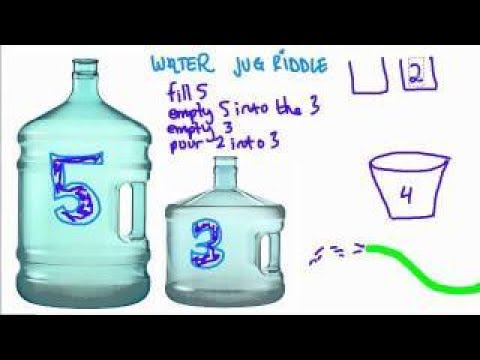 WATER JUG RIDDLE
fill 5
empty 5 into the 3
empty 3
pour 2 into 3
2
5
3
4